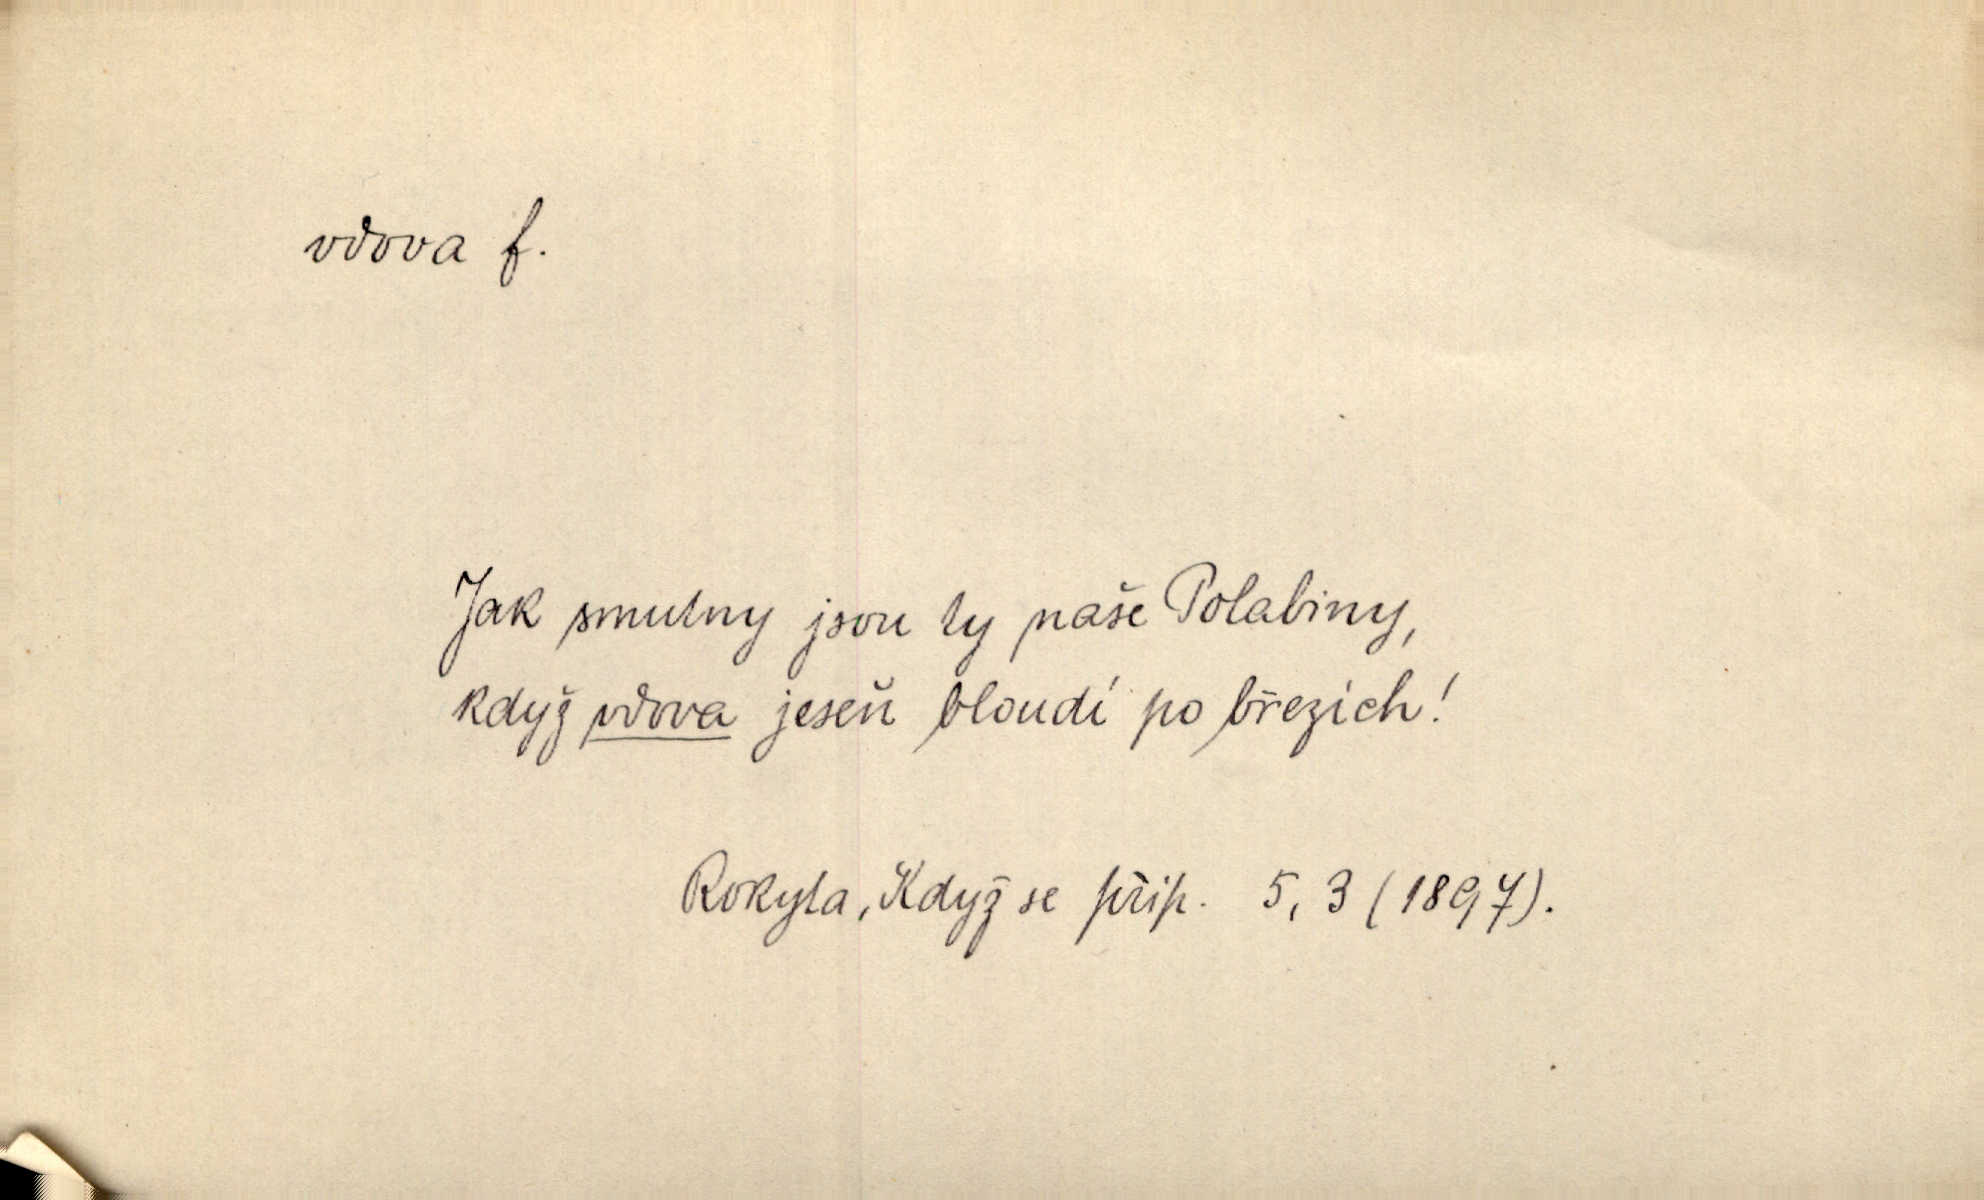 vdova f.
Jak smutny jsou ty naše Polabiny,
když vdova jeseň bloudí po březích!
Rokyta, Když se přip. 5, 3 (1897).